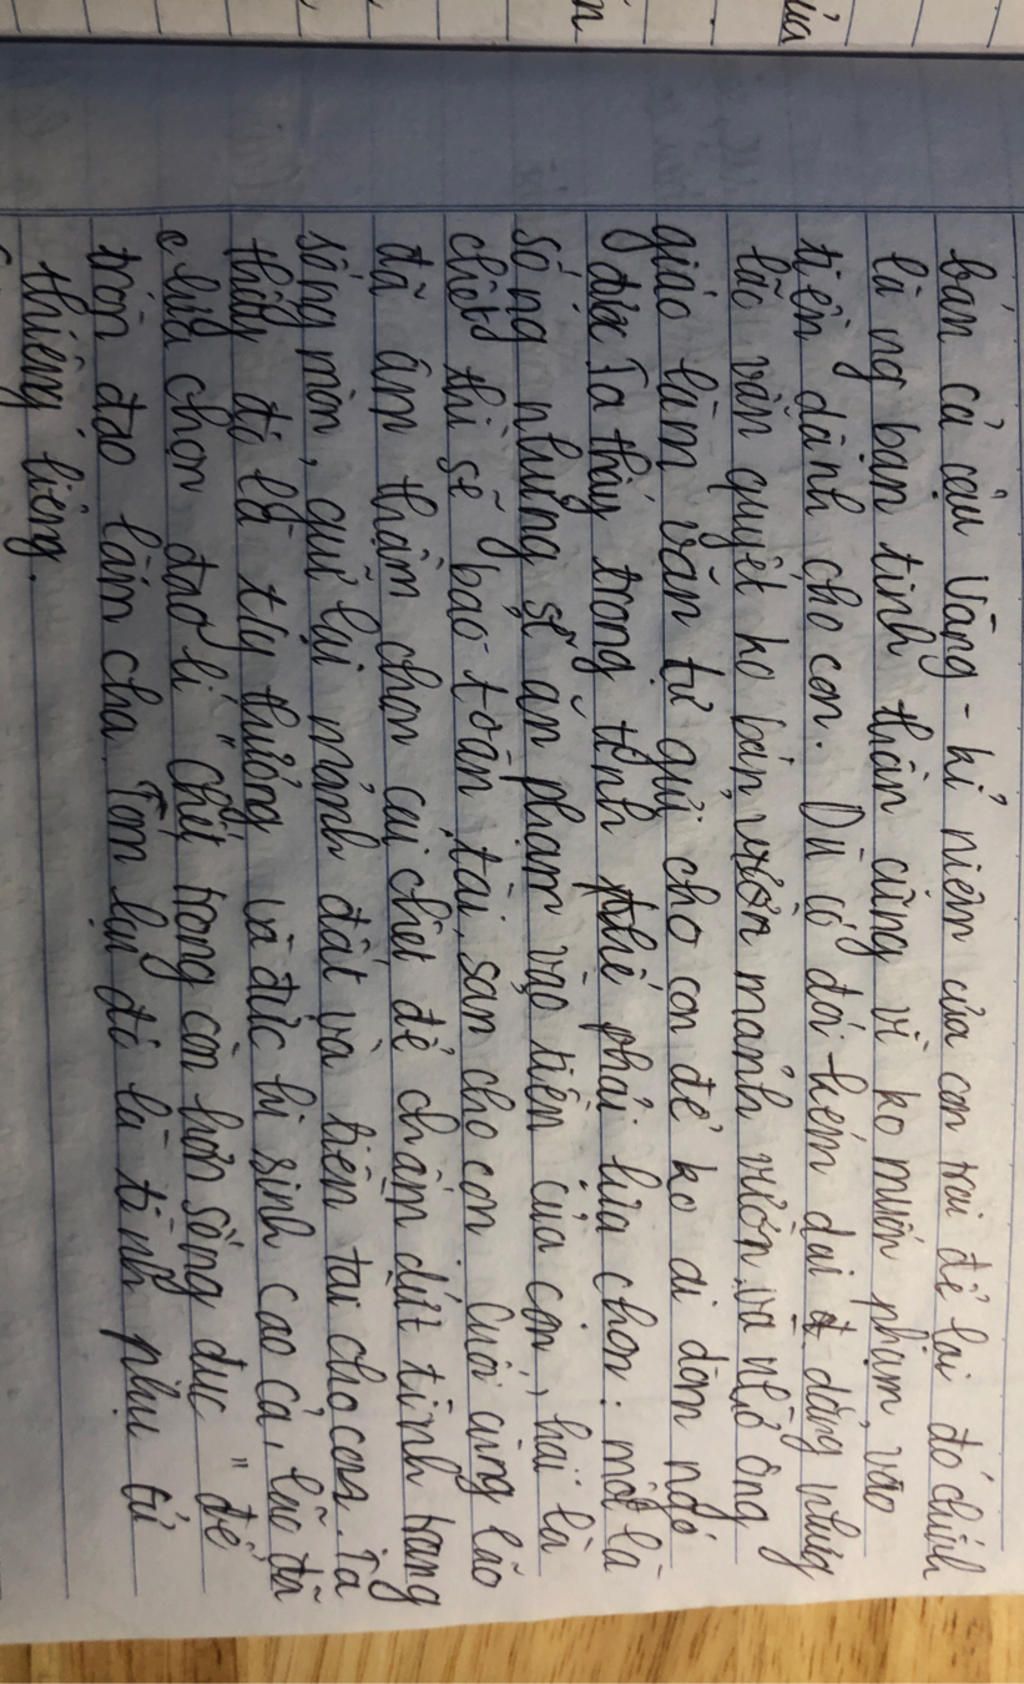 bán cả cậu Vàng - kỉ niệm của con trai để lại đó chính
là ng bạn tinh thần cũng vì ko muốn phạm vào
tiền dành cho con. Dù có đói kém dai dẳng nhưng
lão vẫn quyết ko bán mảnh vườn và nhờ ông
giáo làm văn tự gửi cho con để ko di dòm ngó
Ta thấy trong tình thế phải lựa chọn: một là
sống nhưng sẽ ăn phạm vào tiền của con, hai là
chết thì sẽ bảo toàn tài sản cho con Cuối cùng lão
đã âm thầm chọn cái chết để chấm dứt tình trạng
sống mòn, giữ lại mảnh đất và tiền tài cho con. Ta
thấy đó là tự thưởng và đức hi sinh cao cả, lão đã
lựa chọn đạo lí "chết trong còn hơn sống đục" để
tròn đạo làm cha. Tóm lại đó là tình phụ tử
thiêng liêng.
ủa
n